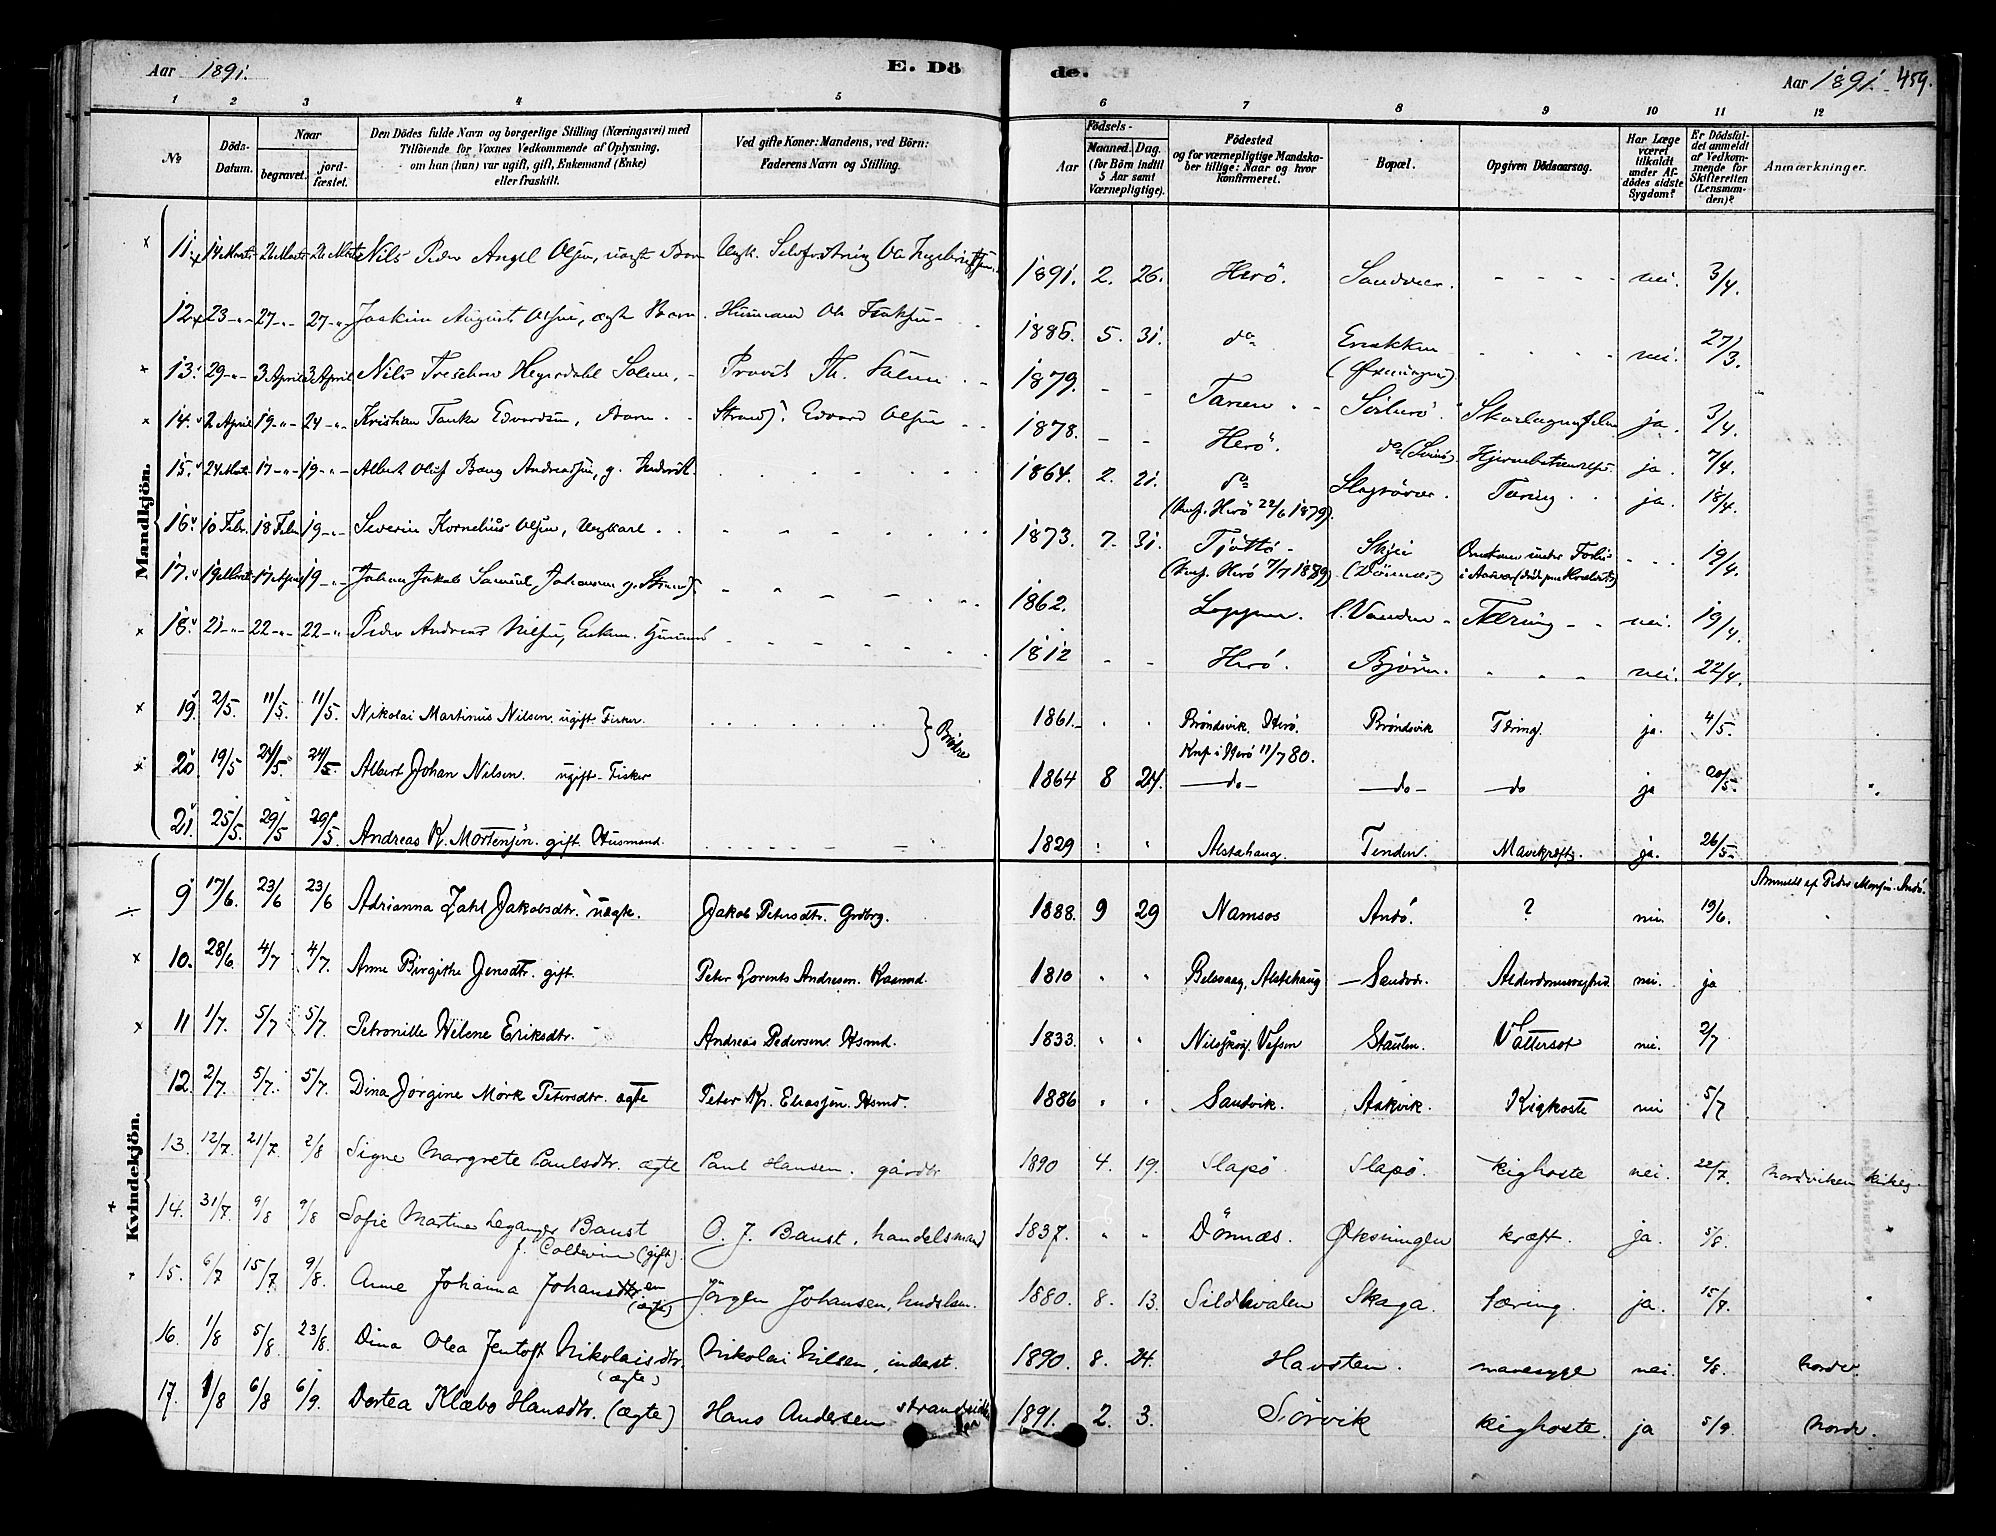 Aar 1891. E. Dö de. Aar 1891. 459.
1 2 3 4 5 6 7 8 9 10 11 12
No Döds-Datum. Naar begravet. jordfæstet. Den Dödes fulde Navn og borgerlige Stilling (Næringsvei) med Tilföiende for Voxnes Vedkommende af Oplysning, om han (hun) var ugift, gift, Enkemand (Enke) eller fraskilt. Ved gifte Koner: Mandens, ved Börn: Faderens Navn og Stilling. Födsels- Aar Maaned. Dag. (for Börn indtil 5 Aar samt Værnepligtige). Födested og for værnepligtige Mandskaber tillige: Naar og hvor konfirmeret. Bopæl. Opgiven Dödsaarsag. Har Læge været tilkaldt under Afdödes sidste Sygdom? Er Dödsfaldet anmeldt af Vedkommende for Skifteretten (Lensmanden)? Anmærkninger.
Mandkjön.
11. 14 Marts 26 Marts 26 Marts Nils Peder Angel Olsen, uægte Barn 1891. 2. 26. Herö. Sandvær. nei. 3/4.
12 23 -"- 27 -"- 27 -"- Joakim August Olsen, ægte Barn. Husmand Ole 1886. 5. 31. do nei. 27/3.
13. 29 -"- 3 April 3 April Nils Treschow Heyerdahl Solem, Provst Th. Solem 1879. - - Tanen. Sörherö. Skarlagensfeber ja. 3/4.
14. 2 April 19 -"- 24 -"- Kristian Tanke Edvardsen, Barn. Strands. Edvard Olsen 1878. - - Herö. do Hjernebetændelse. ja. 7/4.
15. 24 Marts 17 -"- 19 -"- Albert Oluf Bang Andreassen, g. Inderst. 1864. 2. 21. do (Konf. Herö 22/6 1879). Slapövær. Tæring. ja. 18/4.
16. 10 Febr. 18 Febr. 19 -"- Severin Kornelius Olsen, Ungkarl. 1873. 7. 31. Tjöttö (Konf. Herö 7/7 1889) Skjei (Dönnes) Omkom under Forlis 19/4.
17. 19 Marts 17 April 19 -"- Johan Jakob Samuel Johansen g. Strands. 1862. Loppen. Tæring nei. 19/4.
18. 21 -"- 22 -"- 22 -"- Peder Andreas Nilsen, Enkem. 1812 - - Herö. Björn. nei. 22/4.
19. 2/5. 11/5. 11/5. Nikolai Martinus Nilsen. ugift. Fisker. } Brödre 1861. Bröndsvik, Herö. Bröndsvik Tæring. ja. 4/5.
20. 19/5 24/5. 24/5. Albert Johan Nilsen. ugift. Fisker 1864 8 24. Knf i Herö 11/7 80. -do- -do- -do ja 20/5.
21. 25/5. 29/5 29/5. Andreas K. Mortensen. gift. Husmand. 1829 Alstahaug. Tenden. Mavekræft. ja. 26/5.
Kvindekjön.
9 17/6. 23/6 23/6 Adrianna Zahl Jakobsdtr. uægte. Jakob Petersdtr. 1888. 9 29 Namsos Andö. ? nei. 19/6. Anmeldt af Peder Monsen. Andö.
10. 28/6. 4/7 4/7. Anne Birgithe Jensdtr. gift. Peter Lorents Andresen. 1810 Belsvaag, Alstahaug Sandvær. Alderdomssvaghed. nei. ja
11 1/7. 5/7 5/7. Petronille Helene Eriksdtr. Andreas Pedersen. Hsmd. 1833. Vefsen Staulen. Vattersot nei. 2/7
12 2/7 5/7. 5/7. Dina Jörgine Mörk Petersdtr. ægte Peter Kr. Eliassen. Hsmd. 1886 Sandvik. Askvik. Kighoste nei 5/7
13. 12/7. 21/7. 2/8 Signe Margrete Paulsdtr. ægte Paul Hansen. gårdbr 1890 4. 19. Slapö Slapö. kighoste nei. 22/7. Nordvikens kirkeg.
14. 31/7. 9/8 9/8 Sofie Martine Leganger Baust f. Coldevin (gift). O. J. Baust, handelsmand 1837. Dönnæs. Öksningen kræft. ja. 5/8.
15. 6/7 15/7 9/8. Anne Johanna Johansen (ægte) Jörgen Johansen, 1880. 8. 13. Sildhvalen Skaga. tæring. ja. 15/7.
16. 1/8 5/8. 23/8. Dina Olea Jentoft Nikolaisdtr. (ægte) Nikolai Nilsen, inderst. 1890. 8. 24. Havsten. mavesyge nei. 4/8. Nordv.
17. 1/8 6/8 6/9. Dortea Klæbo Hansdtr. (ægte) Hans Andersen strandsidder 1891. 2. 3. Sörvik kighoste. ja 5/9. Nordv.